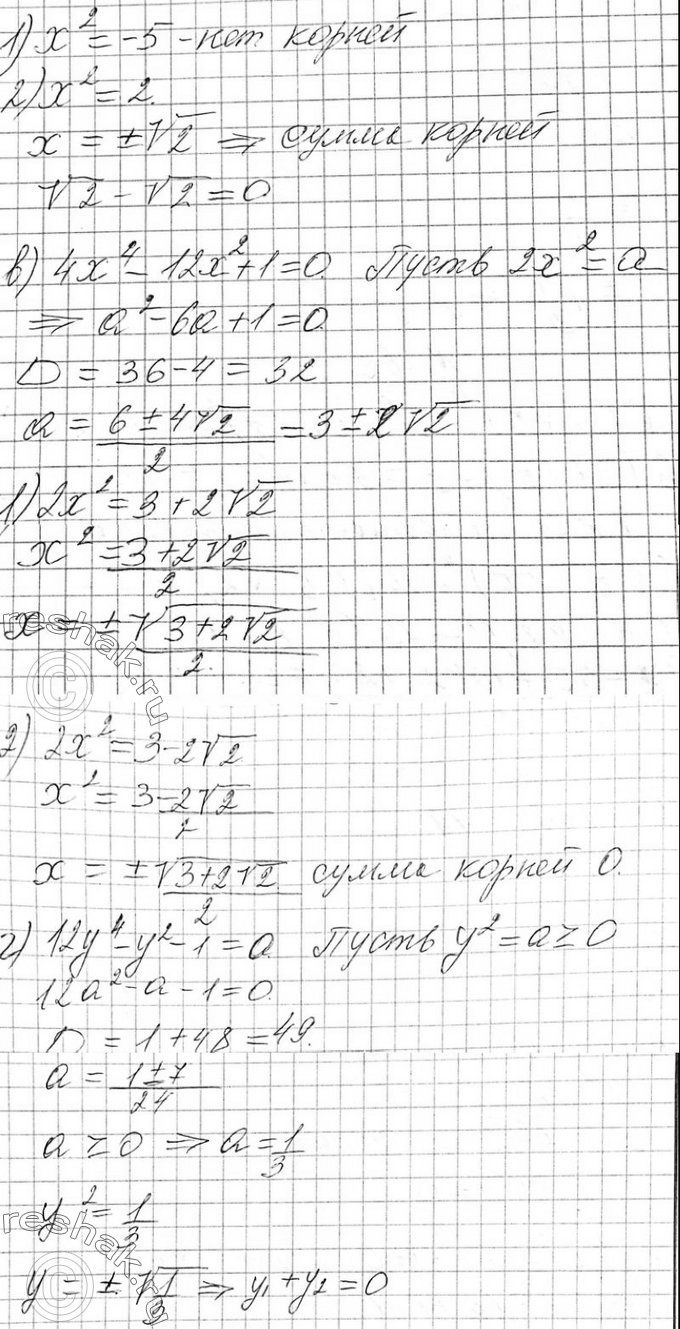 1) x² = -5 - нет корней
2) x² = 2.
x = ±√2 ⇒ сумма корней
√2 - √2 = 0
в) 4x⁴ - 12x² + 1 = 0. Пусть 2x² = a
⇒ a² - 6a + 1 = 0
D = 36 - 4 = 32
a = (6 ± 4√2)/2 = 3 ± 2√2
1) 2x² = 3 + 2√2
x² = (3 + 2√2)/2
x = ± √(3 + 2√2)/2.
reshak.ru
2) 2x² = 3 - 2√2
x² = (3 - 2√2)/2
x = ± √(3 + 2√2)/2 сумма корней 0.
г) 12y⁴ - y² - 1 = 0. Пусть y² = a ≥ 0
12a² - a - 1 = 0.
D = 1 + 48 = 49.
a = (1 ± 7)/24
a ≥ 0 ⇒ a = 1/3
y² = 1/3
reshak.ru
y = ± √(1/3) ⇒ y₁ + y₂ = 0